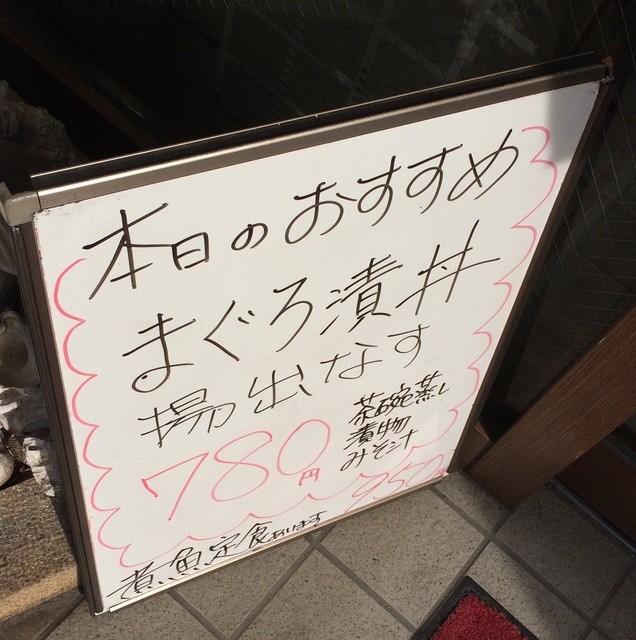 本日のおすすめ
まぐろ漬丼
揚出なす
茶碗蒸し
漬物
みそ汁
780円
950
煮魚定食あります